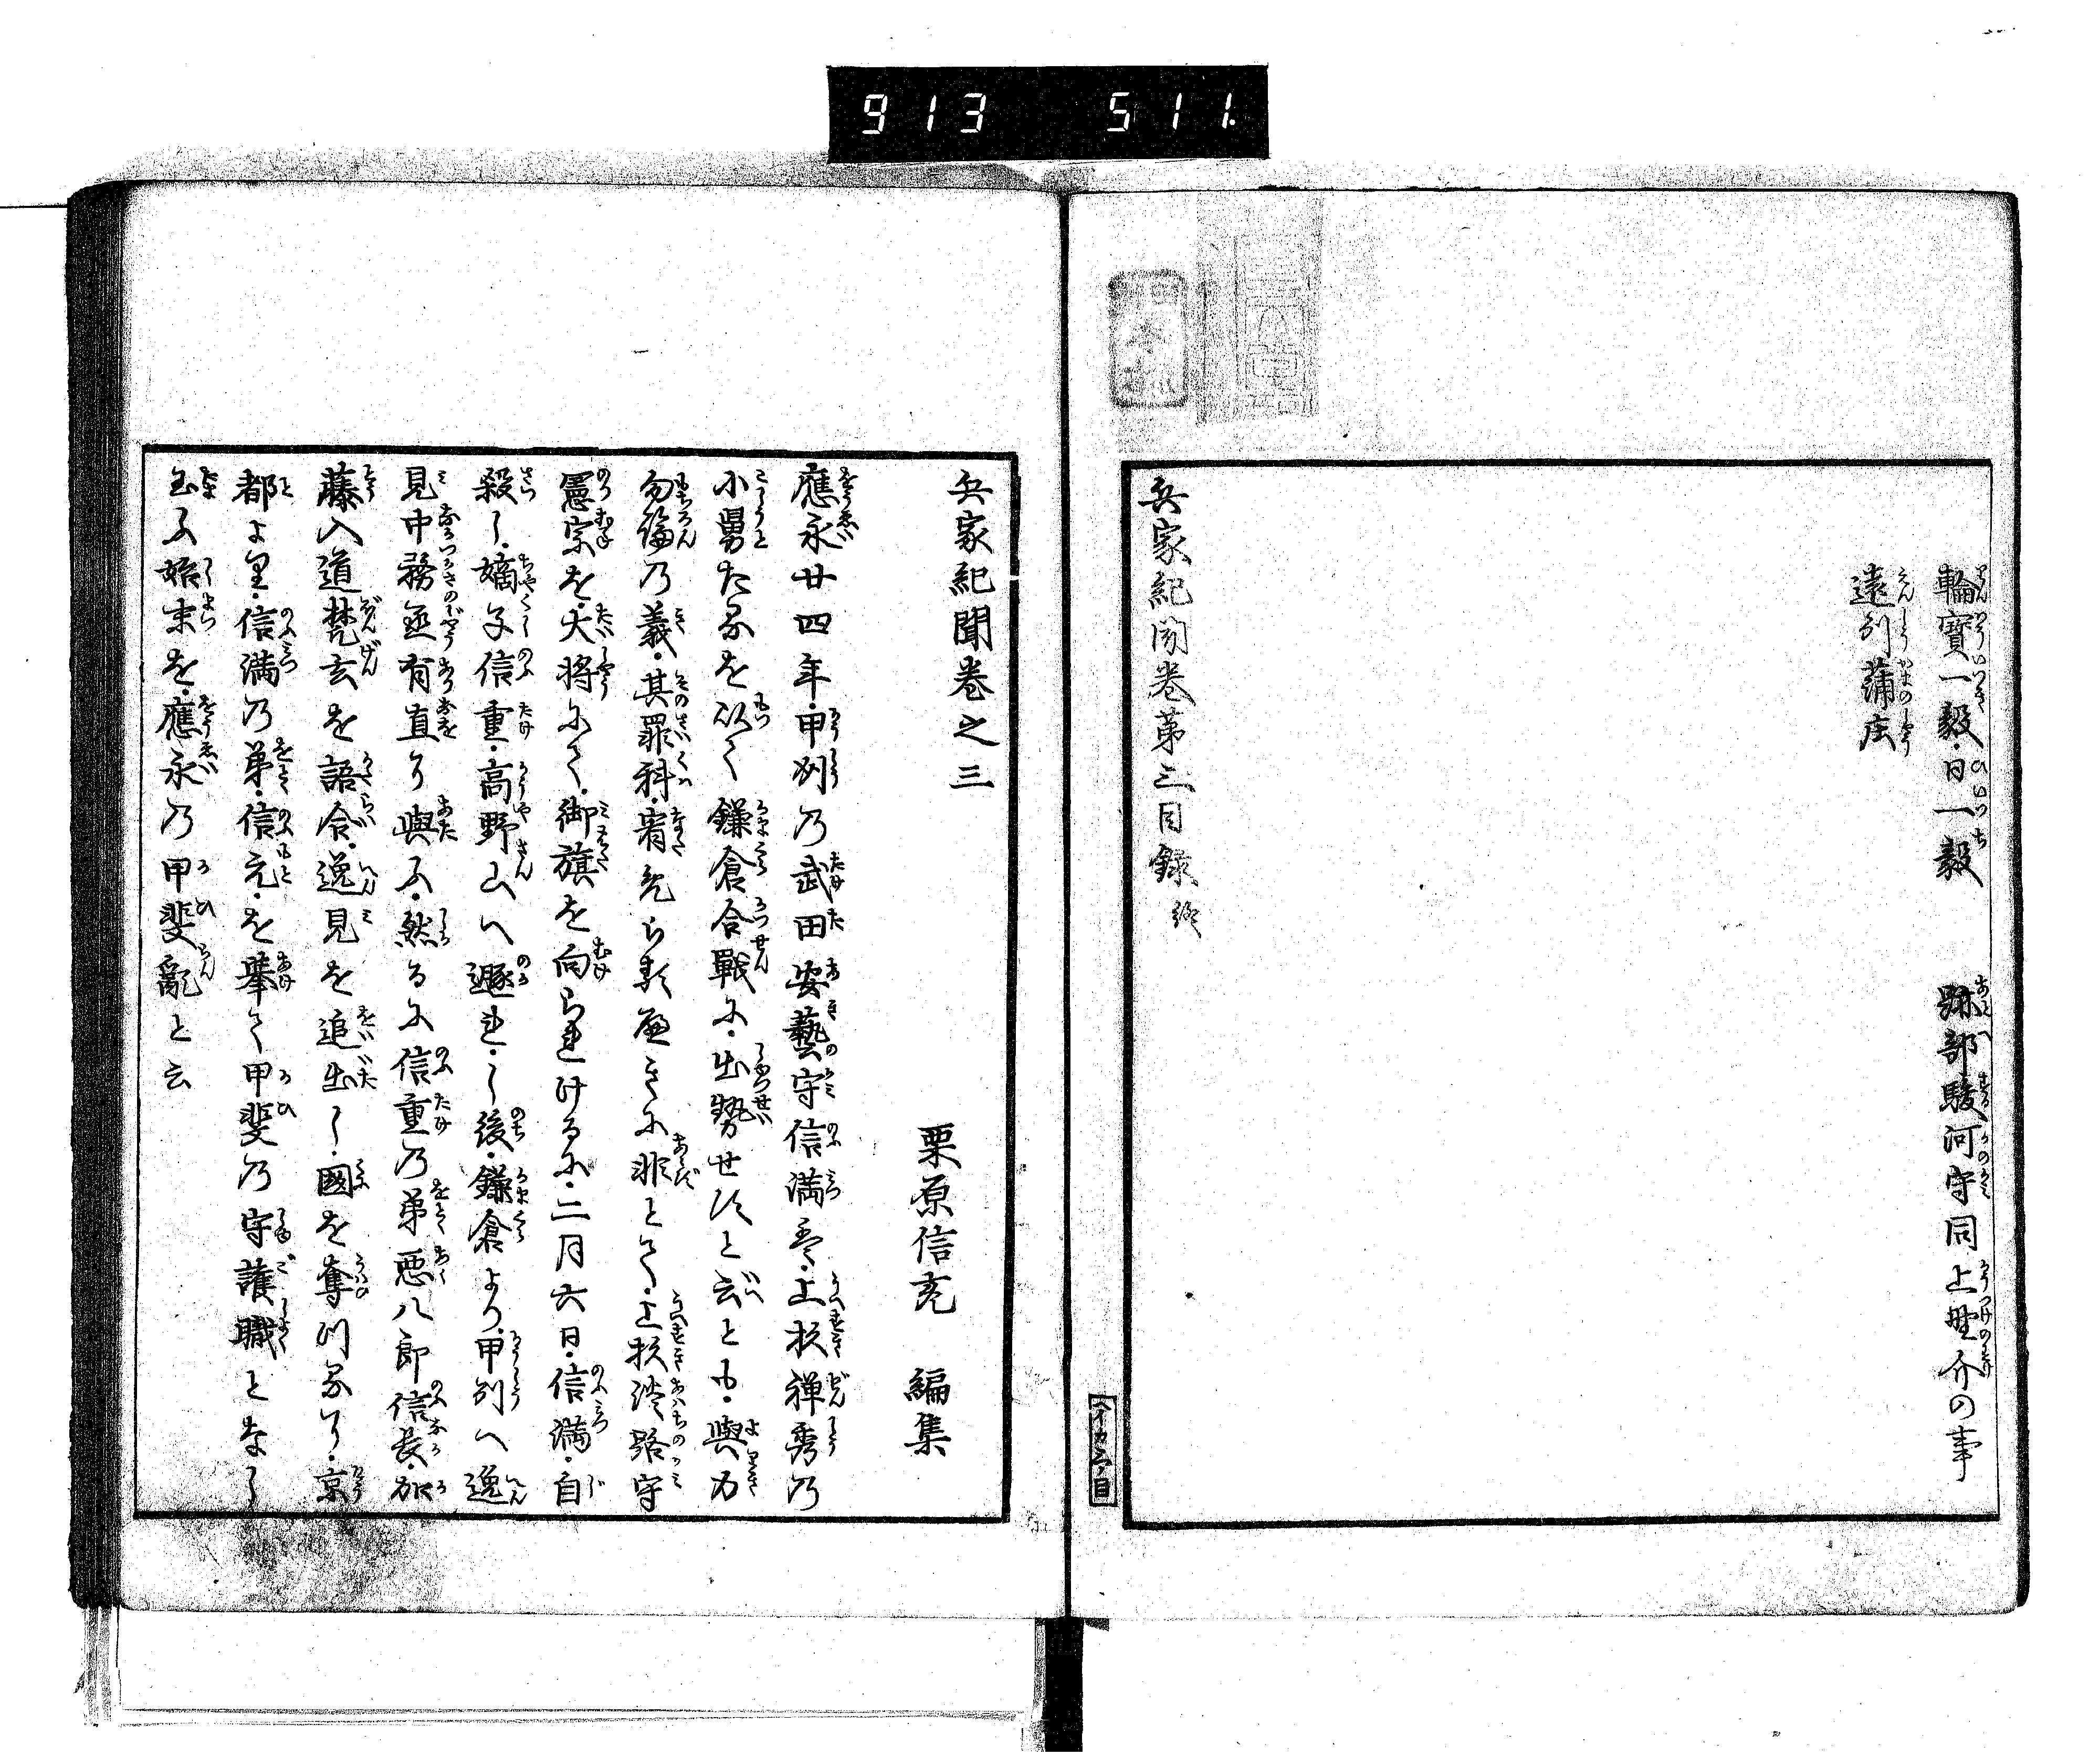 913 511.
輪寶一毅・日一毅　跡部駿河守同上野介の事
遠州蒲庄
兵家紀聞卷第三目録 終
兵家紀聞卷之三
栗原信充 編集
應永廿四年・甲州乃武田安藝守信満も・上杉禅秀乃
小舅たるを以て鎌倉合戰に・出勢せにと云とも・與力
勿論乃義・其罪科・宥免られ難きに非とて・上杉淡路守
憲宗を・大将にて・御旗を向られけるに・二月六日・信満・自
殺し・嫡子信重・高野山へ遯れ・し後・鎌倉より・甲州へ逸
見中務丞有直り與ふ・然るに信重乃弟惡八郎信長・加
藤入道梵玄を語合・逸見を追出し・國を奪けるなり・京
都より・信満乃弟・信元・を擧て甲斐乃守護職となし
玉ふ始末を・應永乃甲斐亂と云